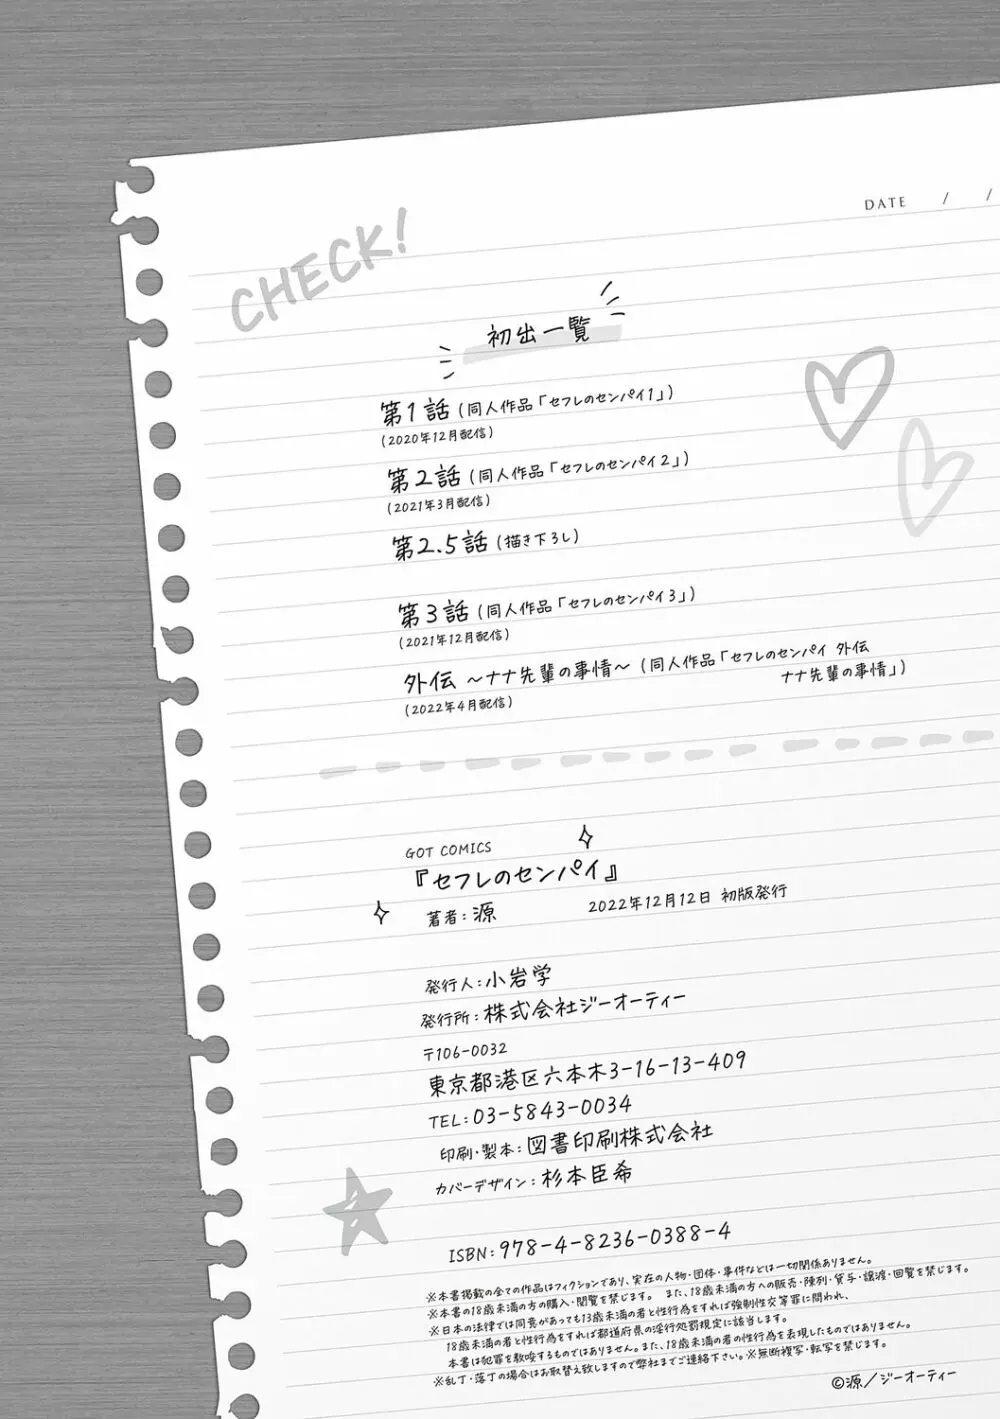 DATE / /
CHECK!
初出一覧
第1話（同人作品「セフレのセンパイ1」）
（2020年12月配信）
第2話（同人作品「セフレのセンパイ2」）
（2021年3月配信）
第2.5話（描き下ろし）
第3話（同人作品「セフレのセンパイ3」）
（2021年12月配信）
外伝 ～ナナ先輩の事情～（同人作品「セフレのセンパイ 外伝
ナナ先輩の事情」）
（2022年4月配信）
GOT COMICS
『セフレのセンパイ』
著者：源 2022年12月12日 初版発行
発行人：小岩学
発行所：株式会社ジーオーティー
〒106-0032
東京都港区六本木3-16-13-409
TEL：03-5843-0034
印刷・製本：図書印刷株式会社
カバーデザイン：杉本臣希
ISBN：978-4-8236-0388-4
※本書掲載の全ての作品はフィクションであり、実在の人物・団体・事件などは一切関係ありません。
※本書の18歳未満の方の購入・閲覧を禁じます。 また、18歳未満の方への販売・陳列・貸与・譲渡・回覧を禁じます。
※日本の法律では同意があっても13歳未満の者と性行為をすれば強制性交等罪に問われ、
18歳未満の者と性行為をすれば都道府県の淫行処罰規定に該当します。
本書は犯罪を教唆するものではありません。また、18歳未満の者の性行為を表現したものではありません。
※乱丁・落丁の場合はお取替え致しますので弊社までご連絡下さい。※無断複写・転写を禁じます。
©源／ジーオーティー